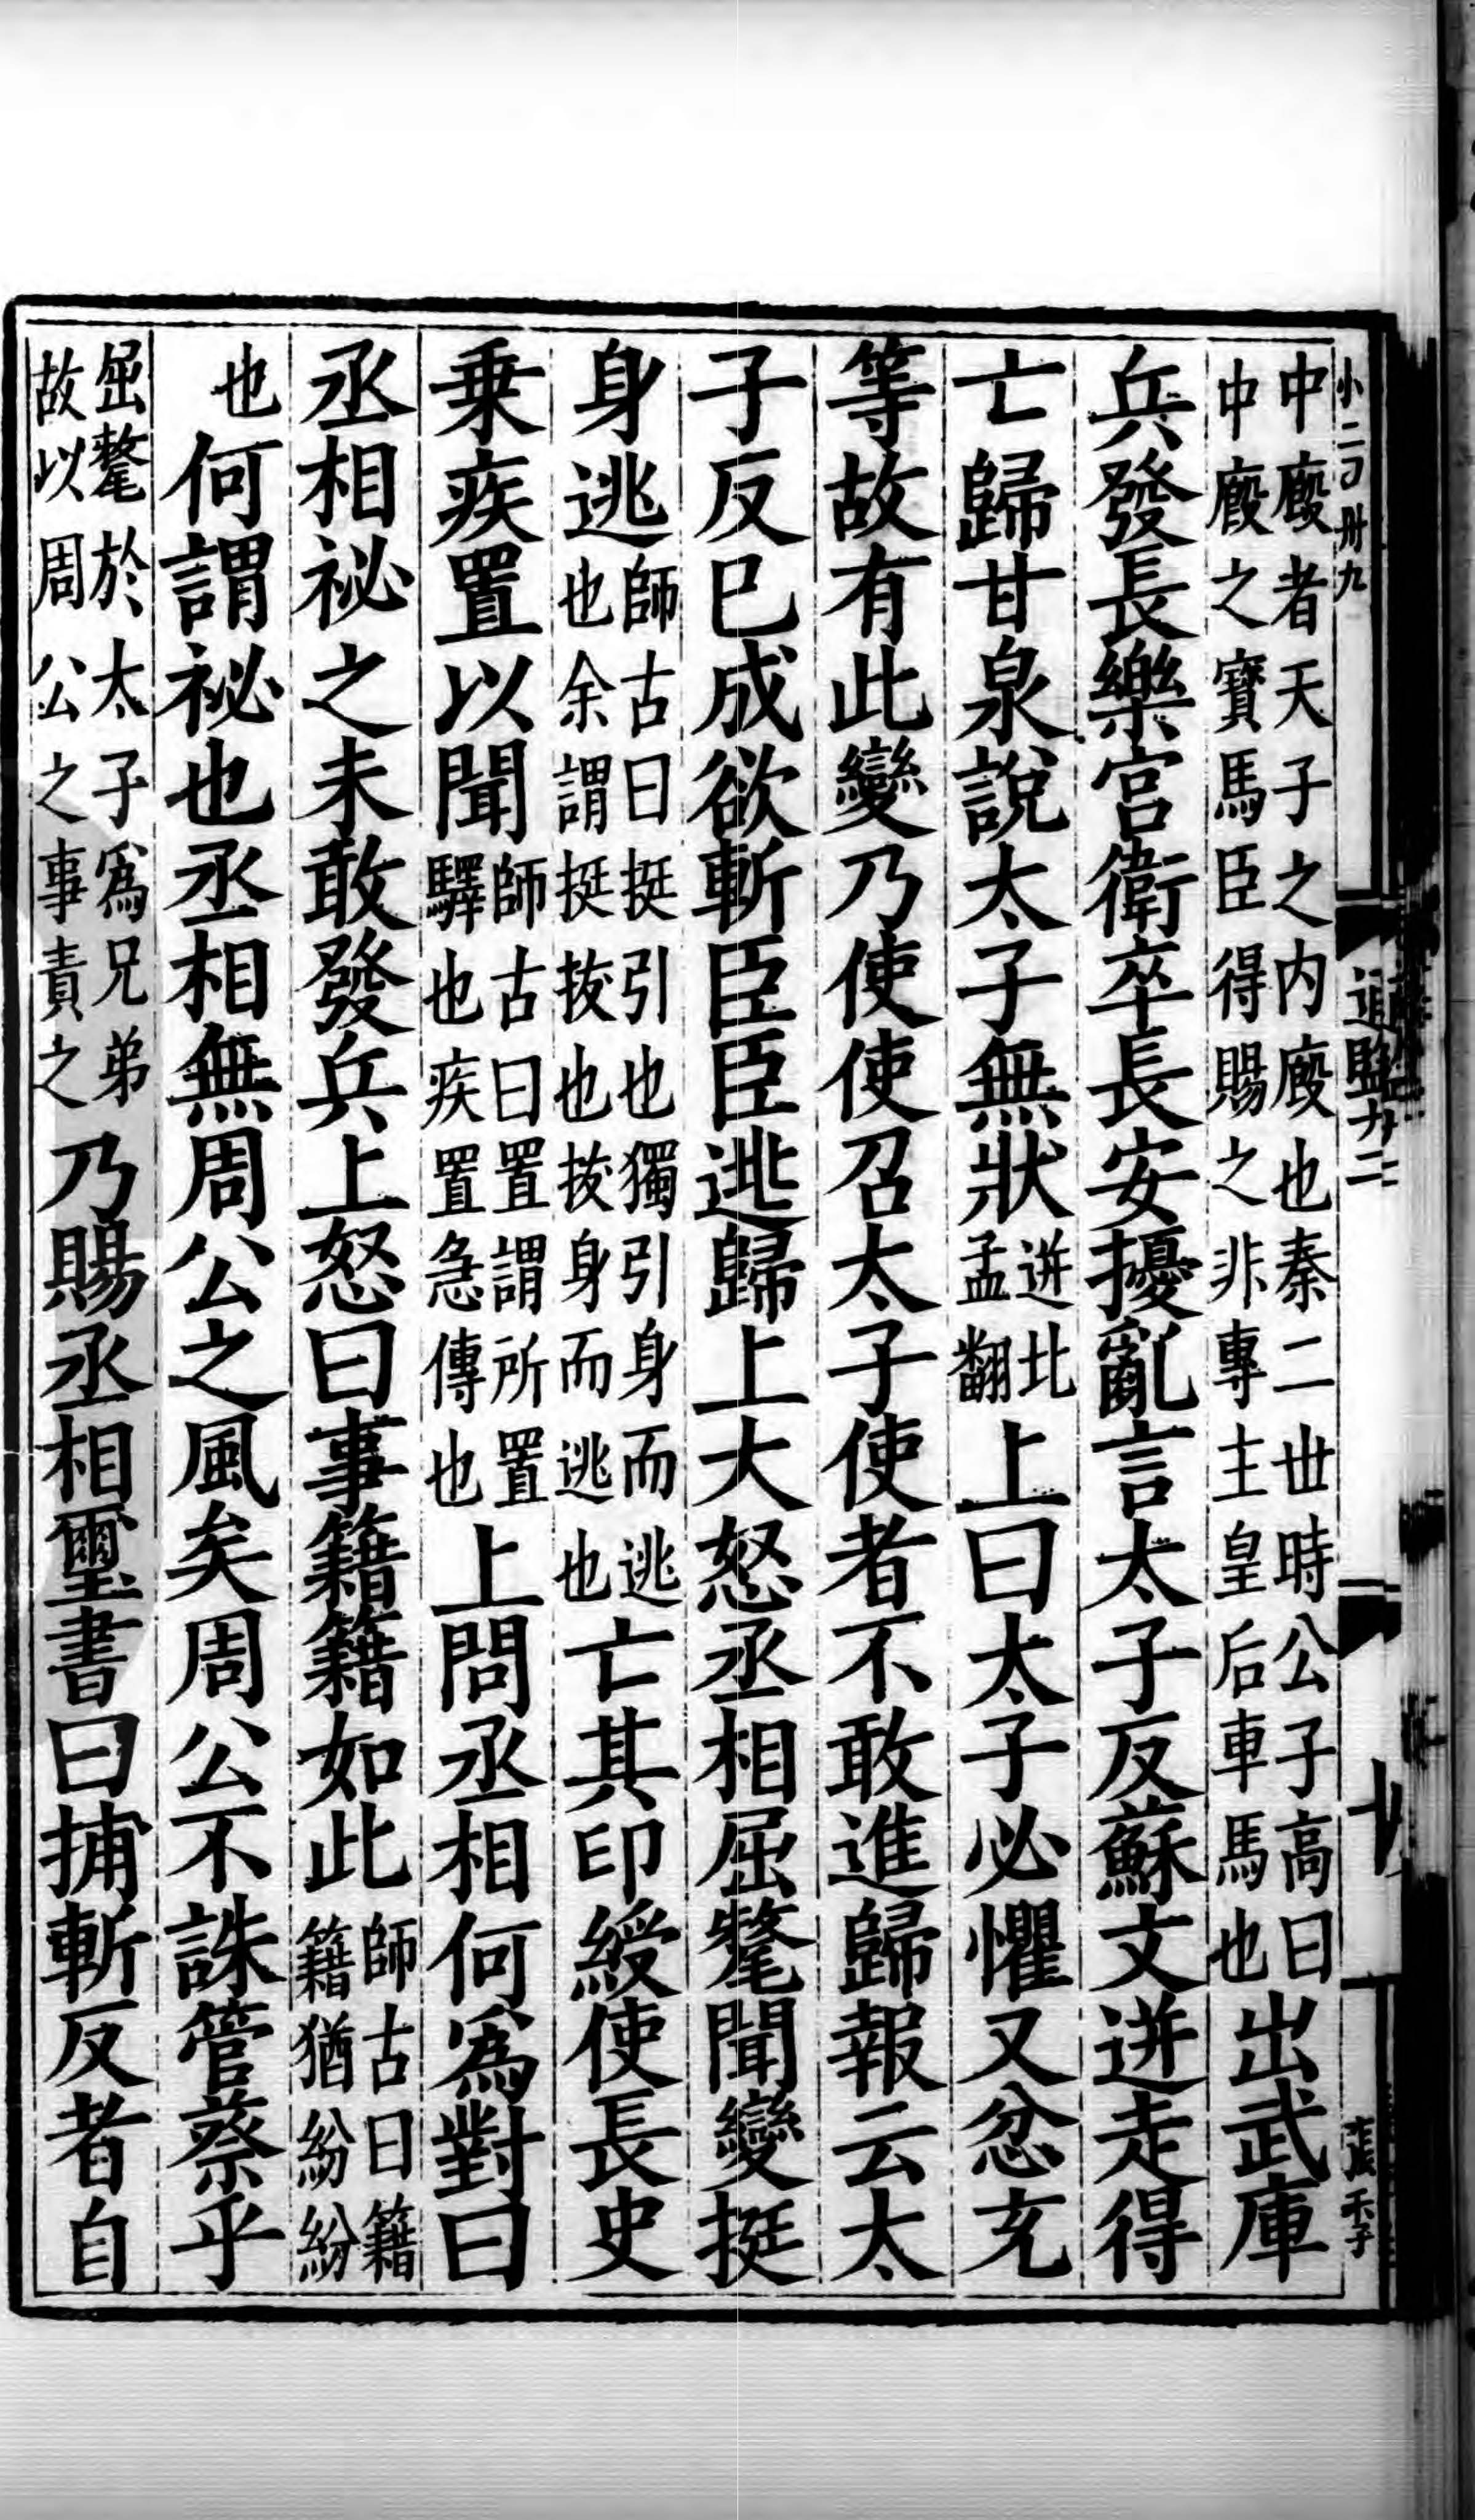 小二百卅九
通鑑廿二
十
張禾子
中廄者天子之内廄也秦二世時公子高曰
中廄之寶馬臣得賜之非專主皇后車馬也
出武庫
兵發長樂宮衛卒長安擾亂言太子反蘇文迸走得
亡歸甘泉說太子無狀
迸北
孟翻
上曰太子必懼又忿充
等故有此變乃使使召太子使者不敢進歸報云太
子反已成欲斬臣臣逃歸上大怒丞相屈氂聞變挺
身逃
師古曰挺引也獨引身而逃
也余謂挺拔也拔身而逃也
亡其印綬使長史
乗疾置以聞
師古曰置謂所置
驛也疾置急傳也
上問丞相何爲對曰
丞相祕之未敢發兵上怒曰事籍籍如此
師古曰籍
籍猶紛紛
也
何謂祕也丞相無周公之風矣周公不誅管蔡乎
屈氂於太子爲兄弟
故以周公之事責之
乃賜丞相璽書曰捕斬反者自